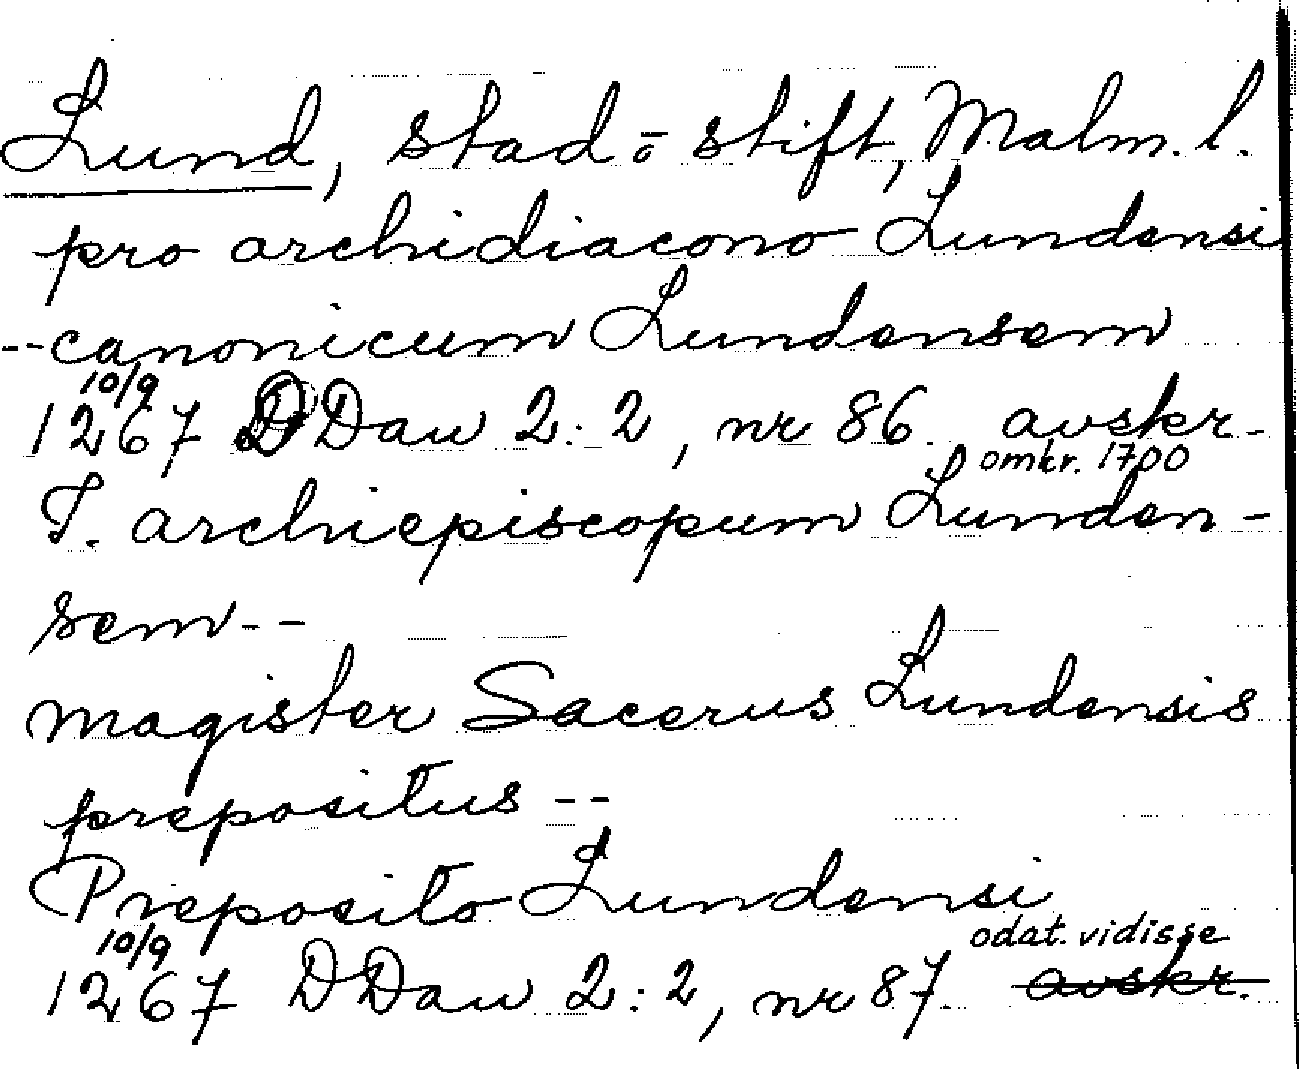 Lund, stad o stift, Malm. l.
pro archidiacono Lundensi
--canonicum Lundensem
10/9
1267 DDan 2:2, nr 86 avskr.
omkr. 1700
T. archiepiscopum Lunden-
sem--
magister Sacerus Lundensis
prepositus --
Preposito Lundensi
10/9 odat. vidisse
1267 DDan 2:2, nr 87 avskr.